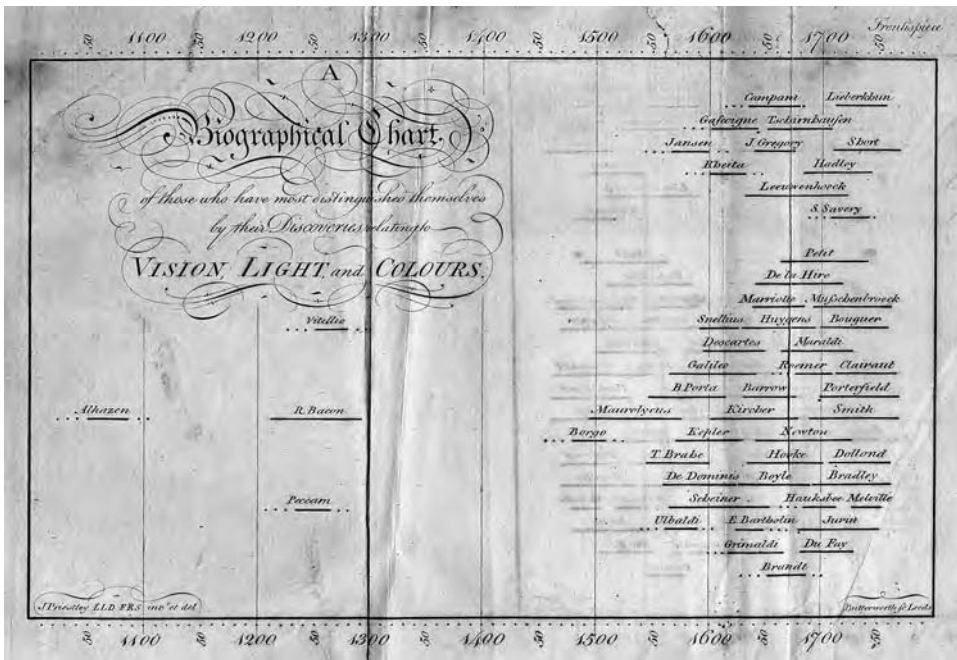 Frontispiece
50 1100 50 1200 50 1300 50 1400 50 1500 50 1600 50 1700 50
A
Biographical Chart.
of those who have most distinguished themselves
by their Discoveries relating to
VISION, LIGHT, and COLOURS.
Campani Lieberkhun
Gascoigne Tschirnhausen
Jansen J. Gregory Short
Rheita Hadley
Leeuwenhoeck
S. Savery
Petit
De la Hire
Marriotte Musschenbroeck
Vitellio Snellius Huygens Bouguer
Descartes Maraldi
Galileo Roemer Clairaut
B. Porta Barrow Porterfield
Alhazen R. Bacon Maurolycus Kircher Smith
Borgo Kepler Newton
T. Brahe Hooke Dollond
De Dominis Boyle Bradley
Peccam Scheiner Hauksbee Melville
Ulbaldi E. Bartholin Jurin
Grimaldi Du Fay
Brandt
J Priestley LLD FRS invt et del Butterworth sc Leeds
50 1100 50 1200 50 1300 50 1400 50 1500 50 1600 50 1700 50